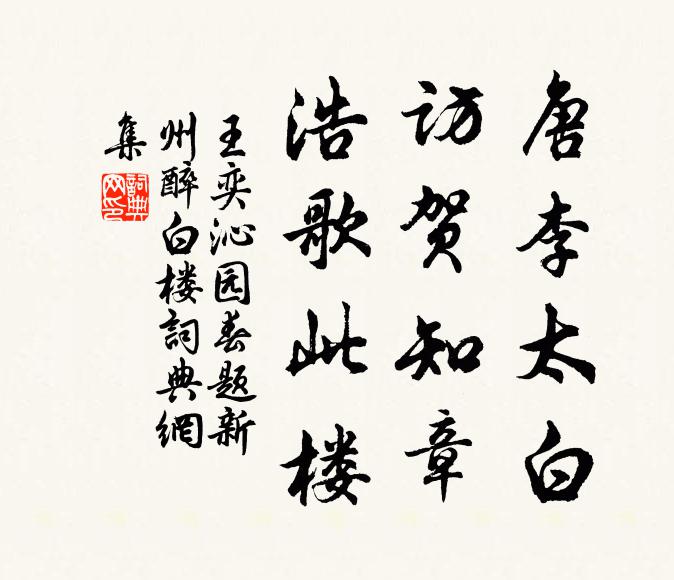 唐李太白
访贺知章
浩歌此楼
王奕沁园春题新
州醉白楼詞典網
集
詞典
网印